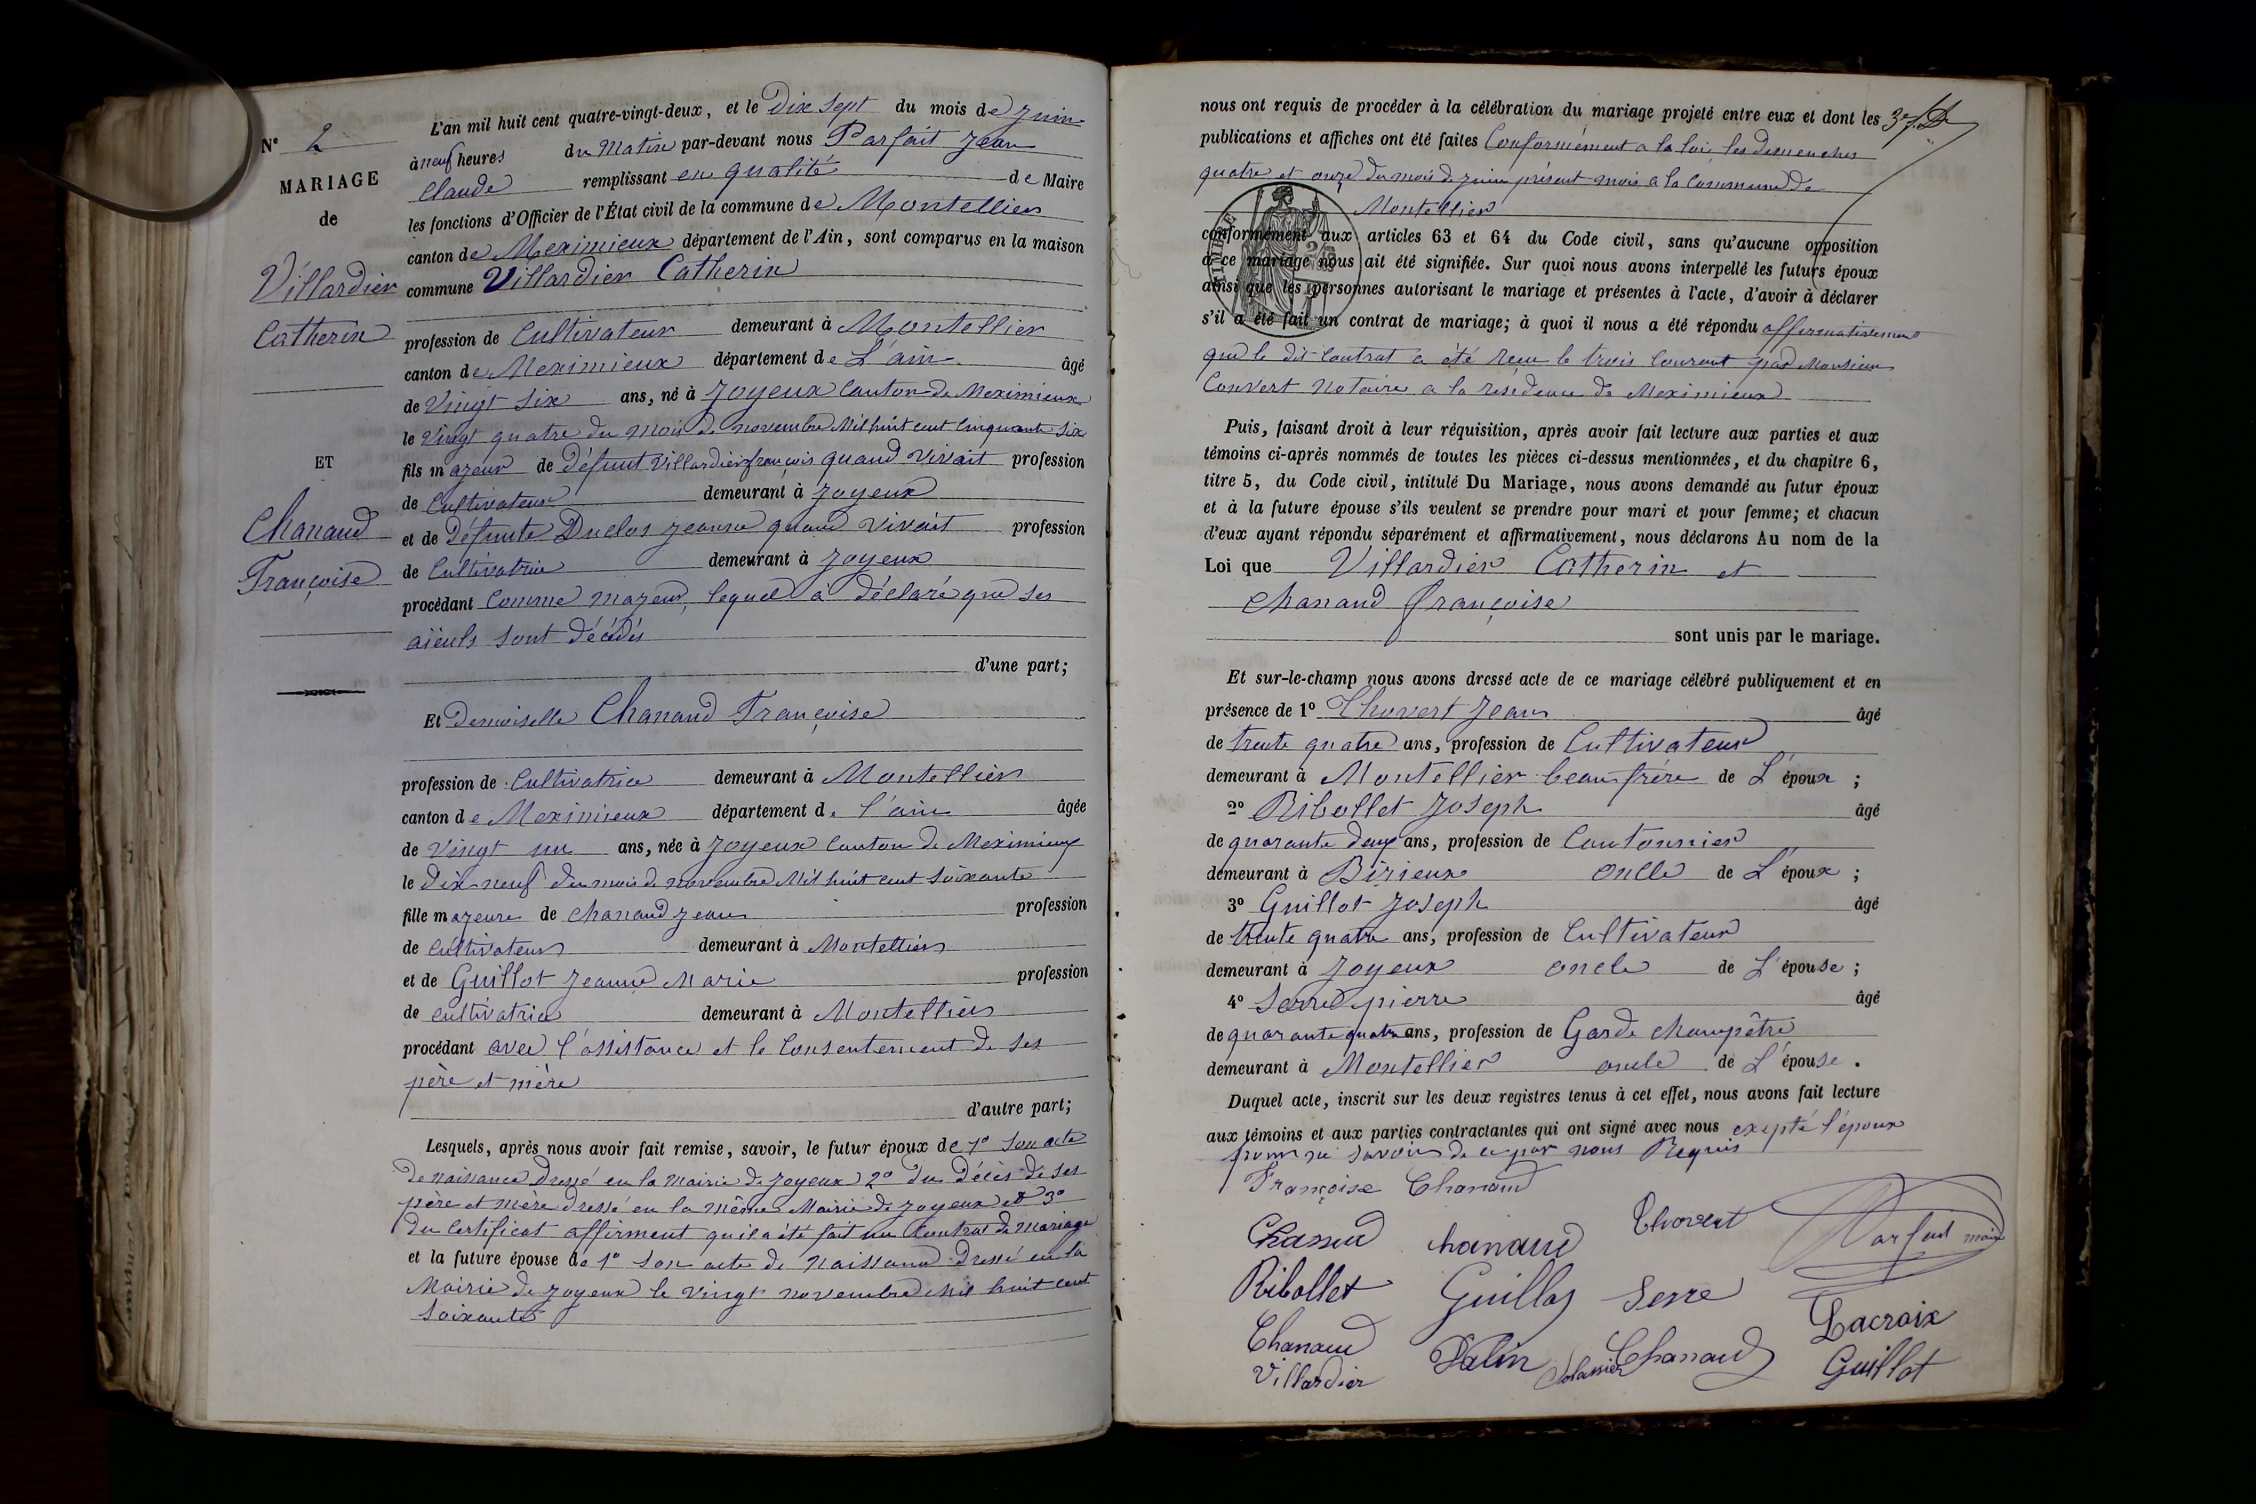 N° 2
MARIAGE
de
Villardier
Catherin
ET
Chanand
Françoise
L'an mil huit cent quatre-vingt-deux, et le Dix Sept du mois de juin
à neuf heures du Matin par-devant nous Parfait Jean
Claude remplissant en qualité de Maire
les fonctions d'Officier de l'État civil de la commune de Montellier
canton de Meximieux département de l'Ain, sont comparus en la maison
commune Villardier Catherin
profession de Cultivateur demeurant à Montellier
canton de Meximieux département de L'ain âgé
de Vingt Six ans, né à Joyeux Canton de Meximieux
le Vingt quatre du mois de novembre Mil huit cent Cinquante Six
fils majeur de Défunt Villardier françois quand Vivait profession
de Cultivateur demeurant à Joyeux
et de Défunte Duclos jeanne quand vivait profession
de Cultivatrice demeurant à Joyeux
procédant Comme majeur, lequel a déclaré que ses
aïeuls sont décédés
d'une part;
Et Demoiselle Chanand Françoise
profession de Cultivatrice demeurant à Montellier
canton de Meximieux département de l'ain âgée
de Vingt un ans, née à Joyeux Canton de Meximieux
le Dix-neuf du mois de novembre Mil huit cent Soixante
fille majeure de Chanand jean profession
de Cultivateur demeurant à Montellier
et de Guillot Jeanne Marie profession
de cultivatrice demeurant à Montellier
procédant avec l'assistance et le Consentement de ses
père et mère
d'autre part;
Lesquels, après nous avoir fait remise, savoir, le futur époux de 1° Son acte
de naissance Dressé en la Mairie de Joyeux 2° du Décès de ses
père et mère dressé en la même Mairie de Joyeux et 3°
du Certificat affirment qu'il a été fait un Contrat de Mariage
et la future épouse de 1° Son acte de Naissance Dressé en la
Mairie de Joyeux le Vingt novembre Mil huit cent
Soixante
nous ont requis de procéder à la célébration du mariage projeté entre eux et dont les
publications et affiches ont été faites Conformément a la loi, les dimenches
quatre et onze du mois de juin présent mois a la Commune de
Montellier
conformément aux articles 63 et 64 du Code civil, sans qu'aucune opposition
à ce mariage nous ait été signifiée. Sur quoi nous avons interpellé les futurs époux
ainsi que les personnes autorisant le mariage et présentes à l'acte, d'avoir à déclarer
s'il a été fait un contrat de mariage; à quoi il nous a été répondu affirmativement
que le dit Contrat a été reçu le trois Courant par Monsieur
Convert Notaire a la résidence de Meximieux
Puis, faisant droit à leur réquisition, après avoir fait lecture aux parties et aux
témoins ci-après nommés de toutes les pièces ci-dessus mentionnées, et du chapitre 6,
titre 5, du Code civil, intitulé Du Mariage, nous avons demandé au futur époux
et à la future épouse s'ils veulent se prendre pour mari et pour femme; et chacun
d'eux ayant répondu séparément et affirmativement, nous déclarons Au nom de la
Loi que Villardier Catherin et
Chanand françoise
sont unis par le mariage.
Et sur-le-champ nous avons dressé acte de ce mariage célébré publiquement et en
présence de 1° Thovert Jean âgé
de trente quatre ans, profession de Cultivateur
demeurant à Montellier beau frère de L'époux ;
2° Ribollet Joseph âgé
de quarante deux ans, profession de Cantonnier
demeurant à Birieux oncle de L'époux ;
3° Guillot Joseph âgé
de trente quatre ans, profession de Cultivateur
demeurant à Joyeux oncle de L'épouse ;
4° Serre pierre âgé
de quarante quatre ans, profession de Garde champêtre
demeurant à Montellier oncle de L'épouse.
Duquel acte, inscrit sur les deux registres tenus à cet effet, nous avons fait lecture
aux témoins et aux parties contractantes qui ont signé avec nous exepté l'époux
pour ne savoir de ce par nous Requis
Françoise Chanand
Chanand chanand Thovert Parfait maire
Ribollet Guillot Serre
Lacroix
Chanand Palin Chanand
Villardier Guillot